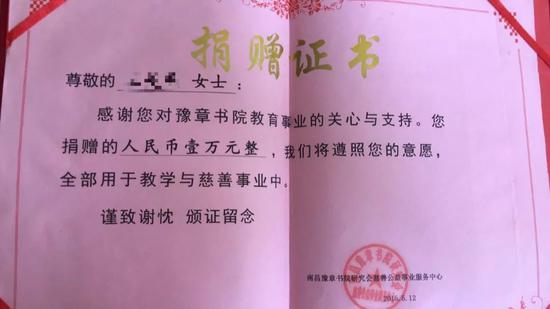 捐赠证书
尊敬的 女士：
感谢您对豫章书院教育事业的关心与支持。您
捐赠的人民币壹万元整，我们将遵照您的意愿，
全部用于教学与慈善事业中。
谨致谢忱 颁证留念
南昌豫章书院研究会慈善公益事业服务中心
6.12